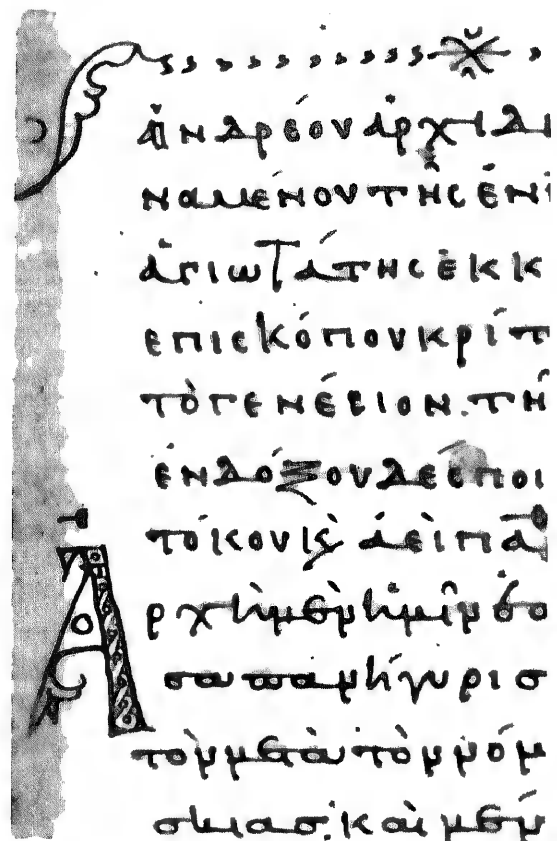 ἀνδρέου ἀρχιδι
ναμένου τῆς ἐνι
ἁγιωτάτης ἐκκ
ἐπισκόπου κρίτ
τὸ γενέσιον. τῆ
ἐνδόξου δεσποι
τόκου κ(αὶ) ἀειπα
Ἀρχὴ μὲν ἡμῖν ἑο
σα πανήγυρις
τὸν μετὰ τὸν νόμ
σκιάς. καὶ μὲν